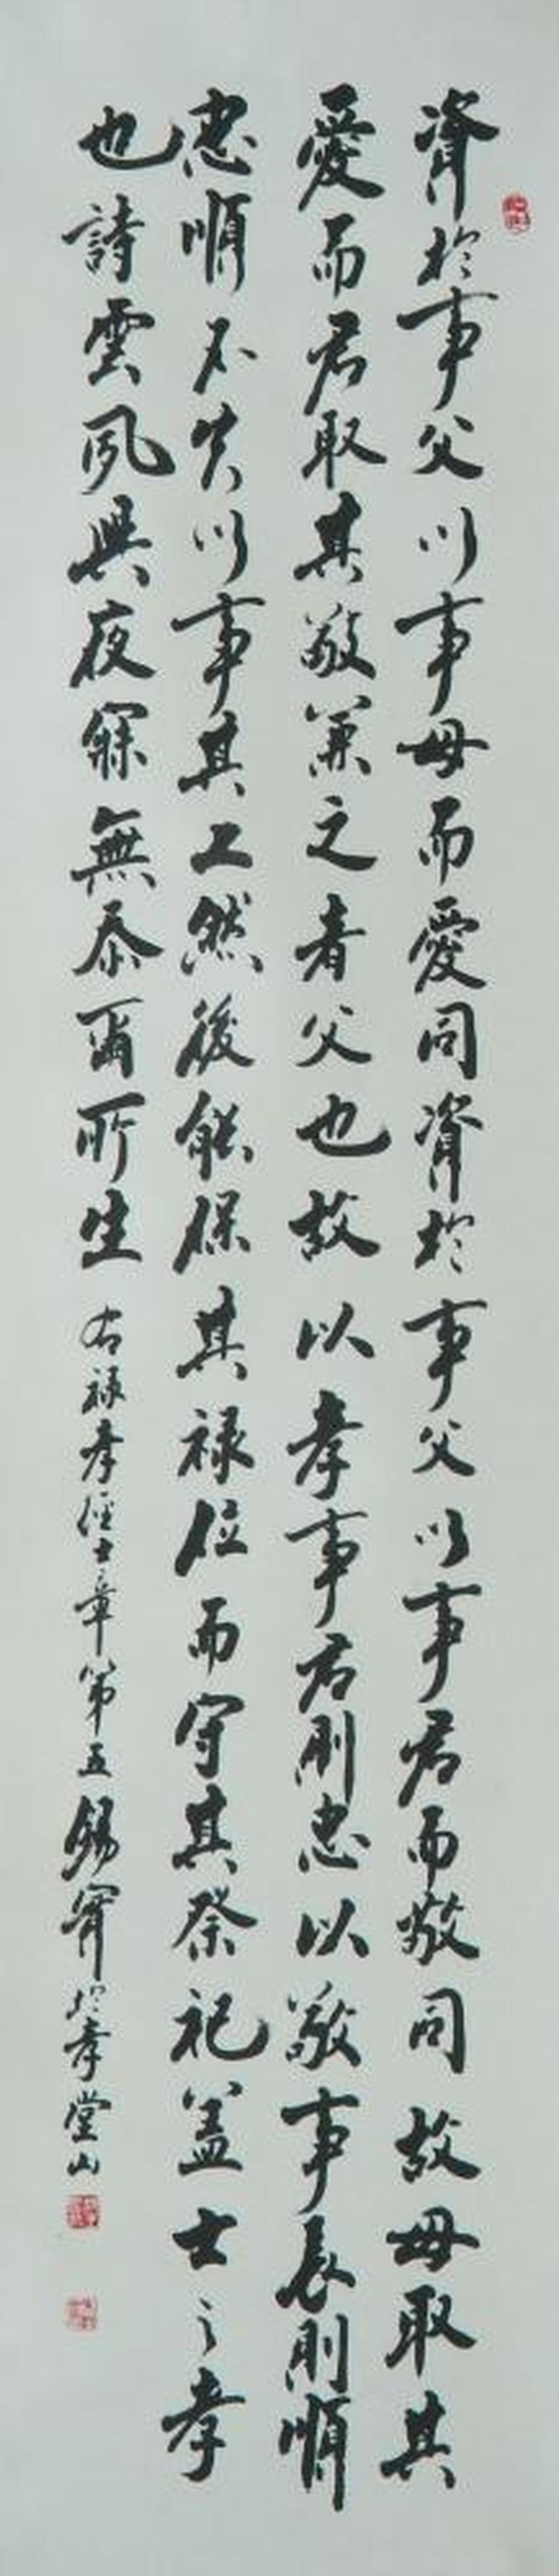 資於事父以事母而愛同資於事父以事君而敬同故母取其
愛而君取其敬兼之者父也故以孝事君則忠以敬事長則順
忠順不失以事其上然後能保其祿位而守其祭祀蓋士之孝
也詩雲夙興夜寐無忝爾所生
右祿孝經士章第五錫寧於孝堂山